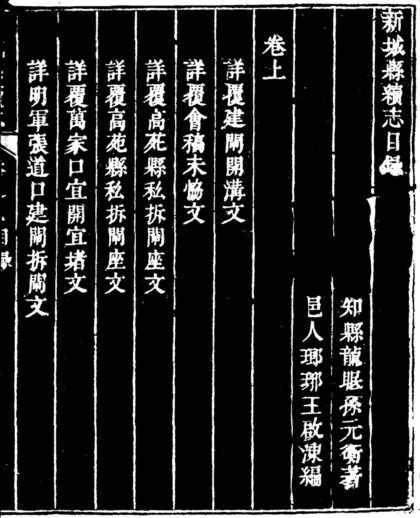 新城縣續志目錄
知縣龍眠孫元衡著
邑人瑯琊王啟涑編
卷上
詳覆建閘開溝文
詳覆會稿未恊文
詳覆高苑縣私拆閘座文
詳覆高苑縣私拆閘座文
詳覆萬家口宜開宜堵文
詳明軍張道口建閘拆閘文